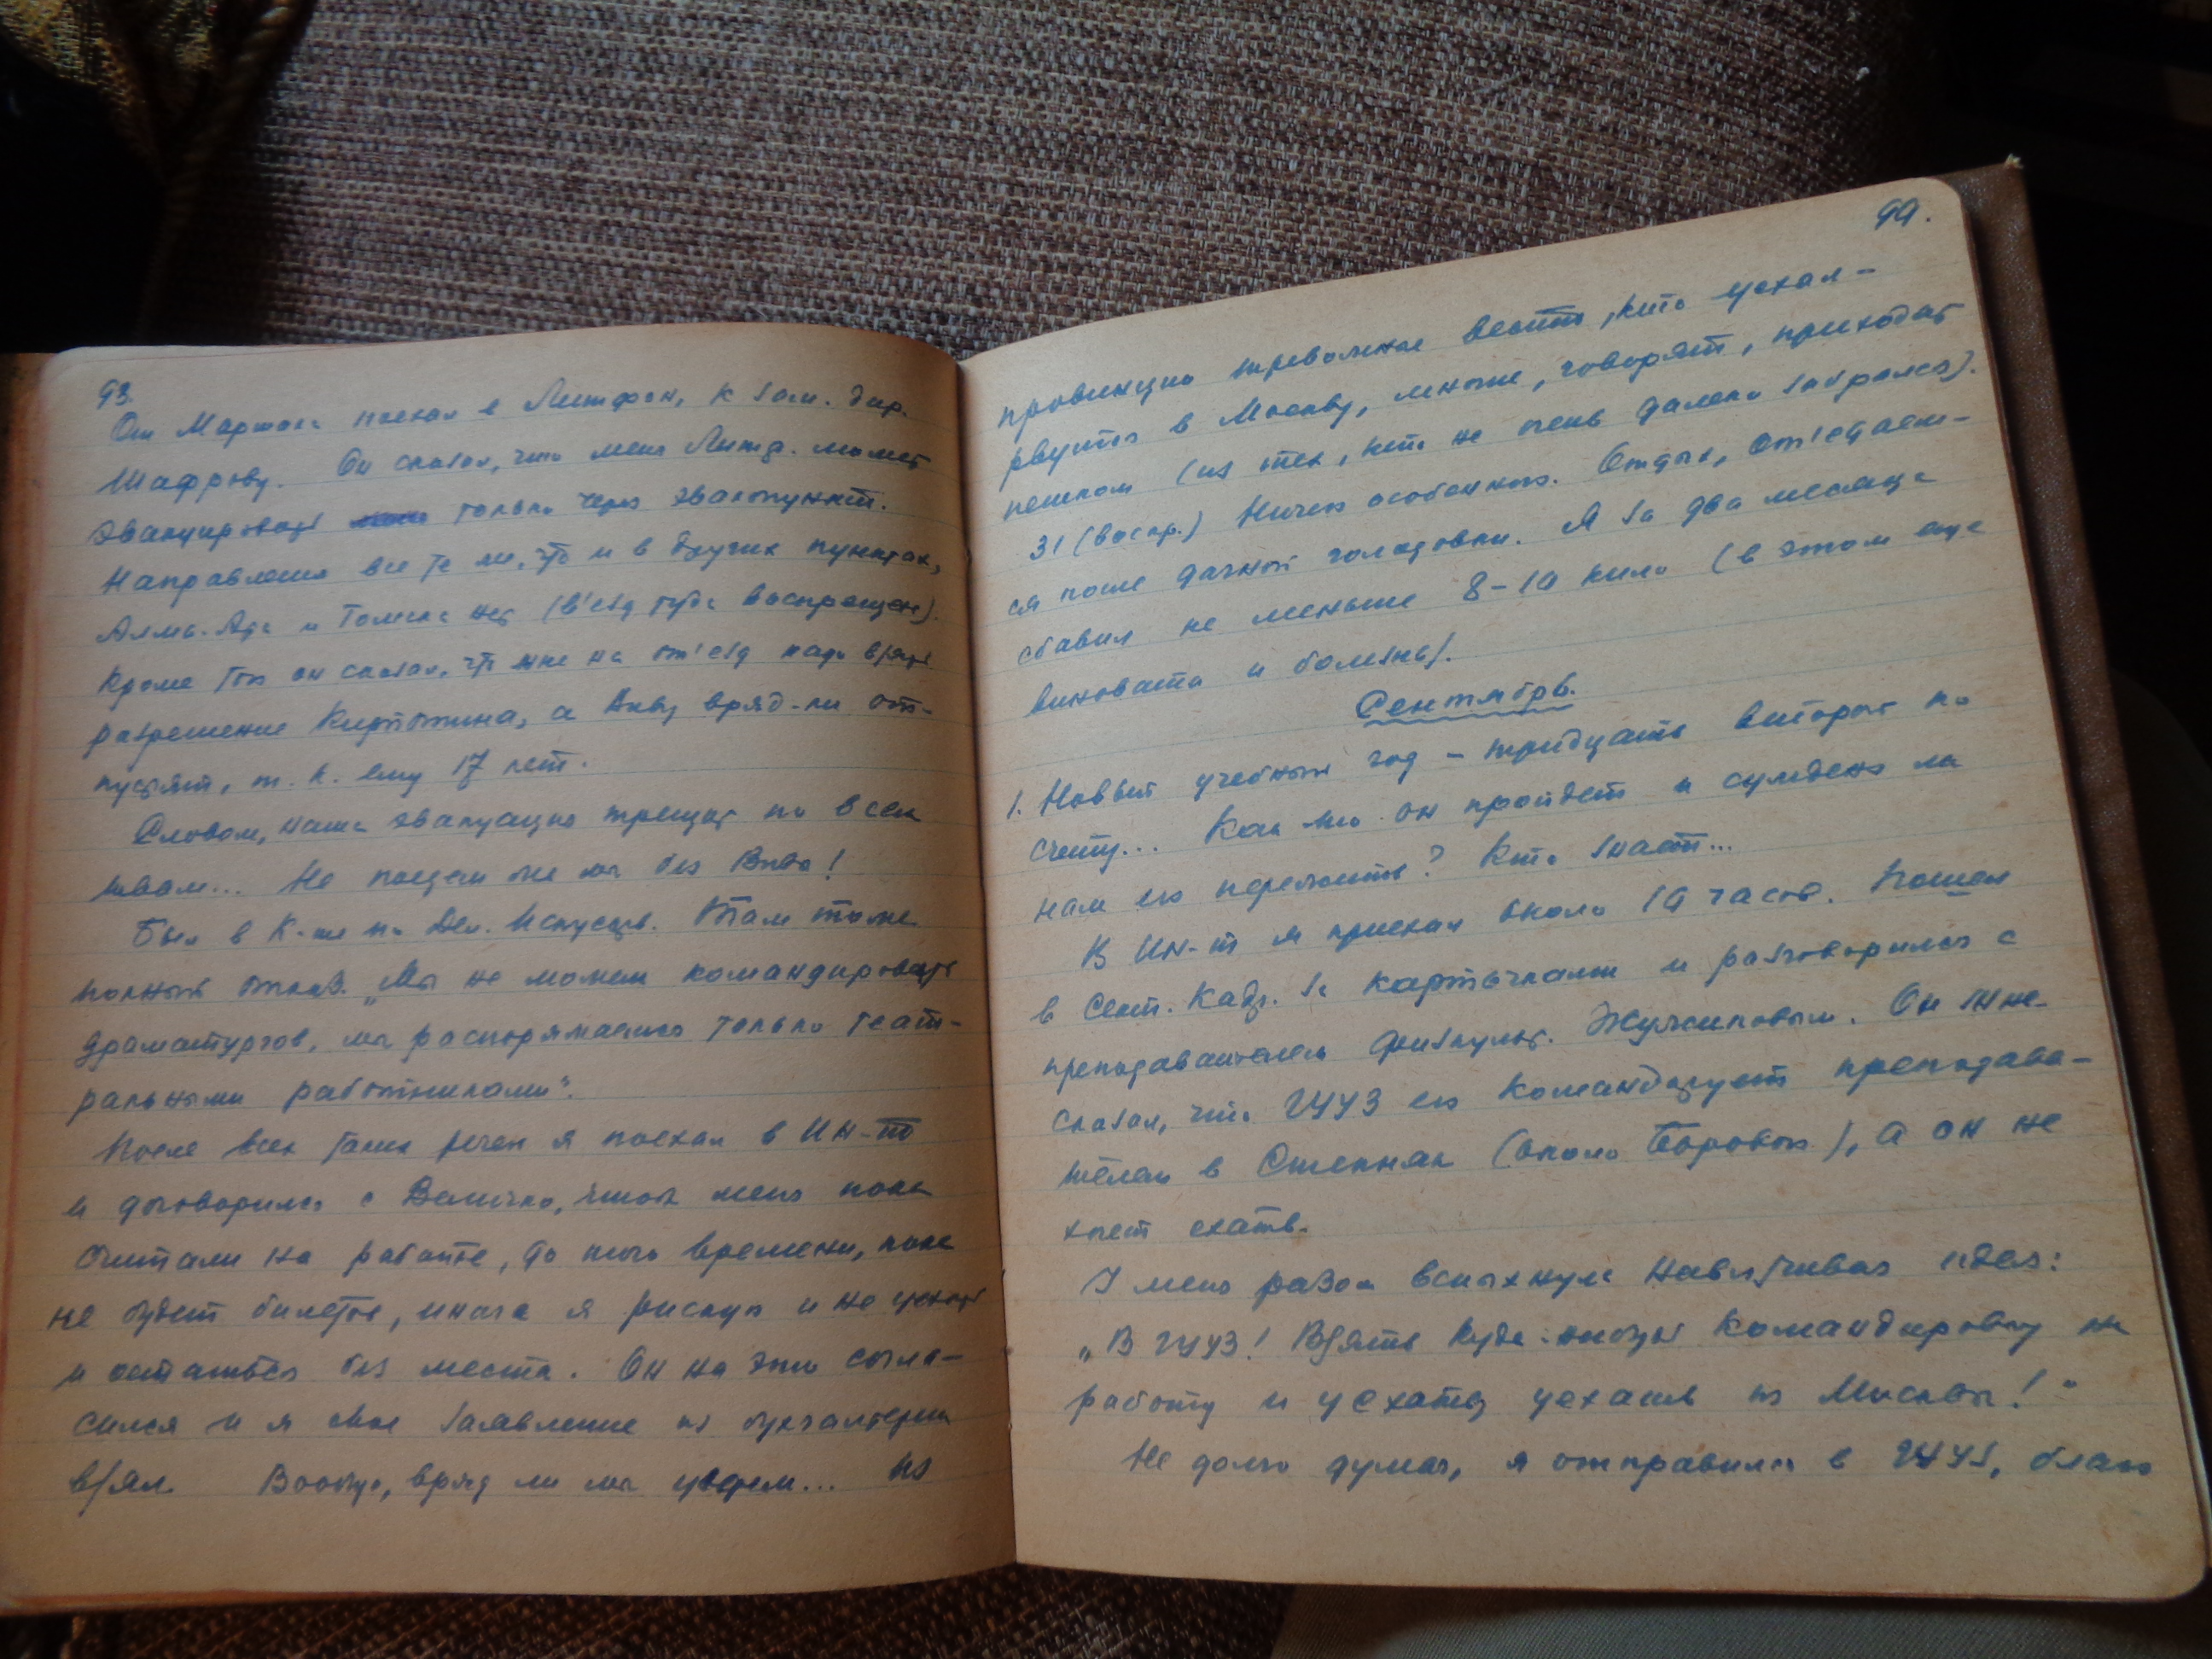 93.
От Маршака поехал в Литфонд, к зам. дир.
Шафрову. Он сказал, что меня Литф. может
эвакуировать только через эвакопункт.
Направления все те же, что и в других пунктах,
Алма-Аты и Томска нет (в'езд туда воспрещен).
Кроме того он сказал, что мне на от'езд надо взять
разрешение Кирпотина, а Виву вряд-ли от-
пустят, т. к. ему 17 лет.
Словом, наша эвакуация трещит по всем
швам... Не поедем же мы без Вивы!
Был в К-те по Дел. Искусств. Там тоже
полный отказ. „Мы не можем командировать
драматургов, мы распоряжаемся только теат-
ральными работниками“.
После всех таких речей я поехал в Ин-т
и договорился с Величко, чтобы меня пока
считали на работе, до того времени, пока
не будет билетов, иначе я рискую и не уехать
и остаться без места. Он на это согла-
сился и я свое заявление из бухгалтерии
взял. Вообще, вряд ли мы уедем... Из
99.
провинции тревожные вести, кто уехал -
рвутся в Москву, многие, говорят, приходят
пешком (из тех, кто не очень далеко забрался).
31 (воскр.) Ничего особенного. Отдых, от'едаем-
ся после дачной голодовки. Я за два месяца
сбавил не меньше 8-10 кило (в этом еще
виновата и болезнь).
Сентябрь.
1. Новый учебный год - тридцать второй по
счету... Как-то он пройдет и суждено ли
нам его пережить? Кто знает...
В Ин-т я приехал около 10 часов. Пошел
в Сект. Кадр. за карточками и разговорился с
преподавателем физкульт. Он мне
сказал, что ГУУЗ его командирует преподава-
телем в Степняк (около Борового), а он не
хочет ехать.
У меня разом вспыхнула навязчивая идея:
„В ГУУЗ! Взять куда-нибудь командировку на
работу и уехать, уехать из Москвы!“
Не долго думая, я отправился в ГУУЗ, благо